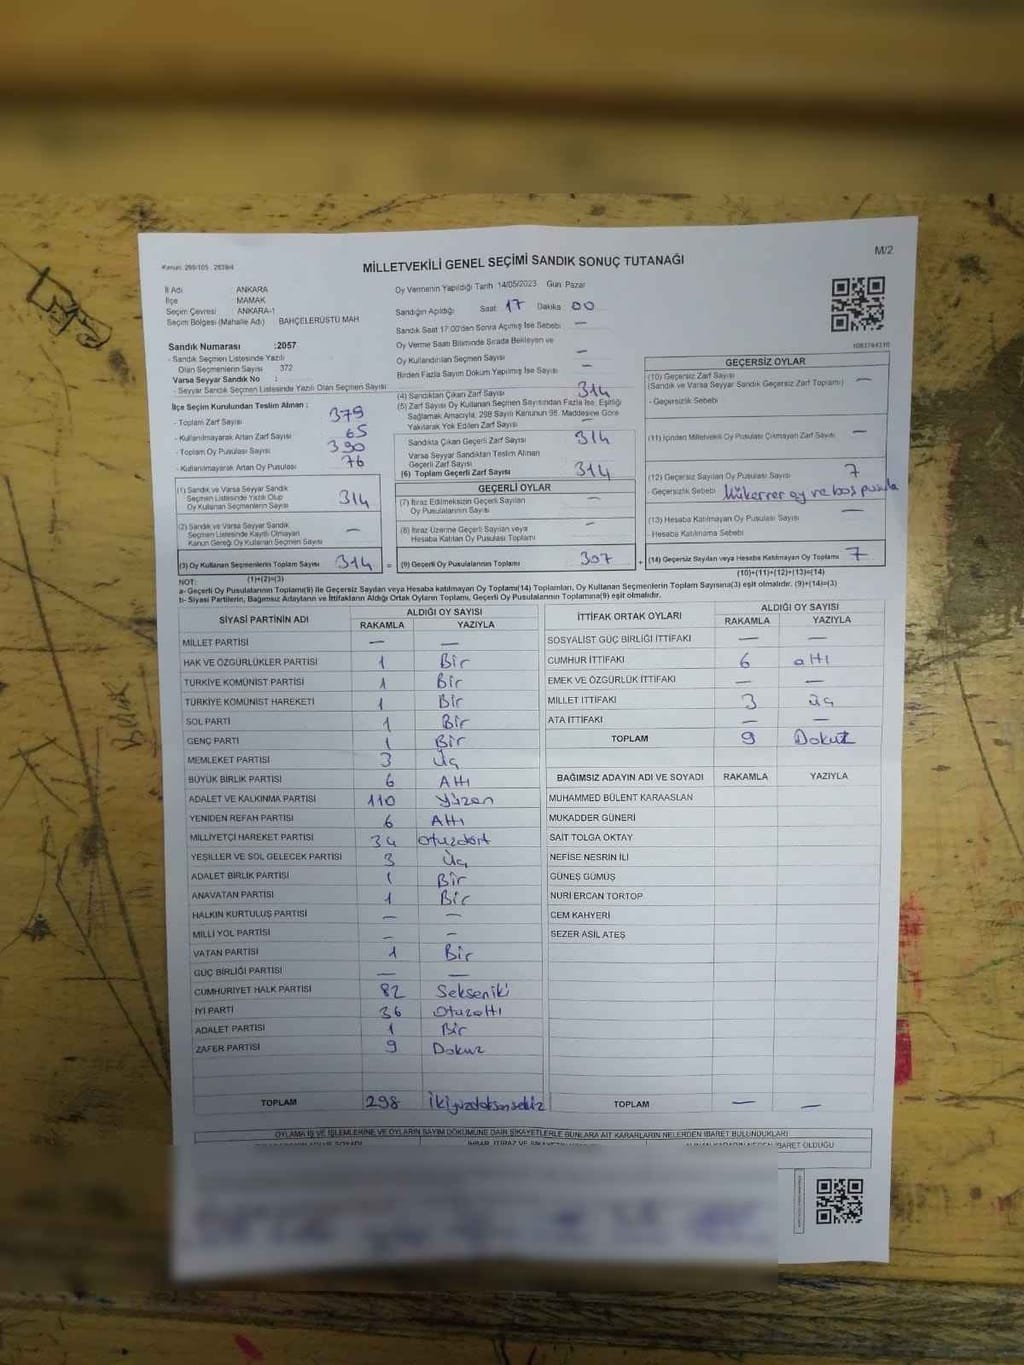 M/2
Kanun: 298/105 2839/4
MİLLETVEKİLİ GENEL SEÇİMİ SANDIK SONUÇ TUTANAĞI
İl Adı : ANKARA
İlçe MAMAK
Seçim Çevresi ANKARA-1
Seçim Bölgesi (Mahalle Adı) BAHÇELERÜSTÜ MAH
Oy Vermenin Yapıldığı Tarih 14/05/2023 Gün Pazar
Sandığın Açıldığı Saat 17 Dakika 00
Sandık Saat 17:00'den Sonra Açılmış İse Sebebi —
Oy Verme Saati Bitiminde Sırada Bekleyen ve
Oy Kullandırılan Seçmen Sayısı —
Birden Fazla Sayım Döküm Yapılmış İse Sayısı —
Sandık Numarası :2057
- Sandık Seçmen Listesinde Yazılı
Olan Seçmenlerin Sayısı 372
Varsa Seyyar Sandık No :
- Seyyar Sandık Seçmen Listesinde Yazılı Olan Seçmen Sayısı
İlçe Seçim Kurulundan Teslim Alınan :
- Toplam Zarf Sayısı 379
- Kullanılmayarak Artan Zarf Sayısı 65
- Toplam Oy Pusulası Sayısı 390
- Kullanılmayarak Artan Oy Pusulası 76
(1) Sandık ve Varsa Seyyar Sandık
Seçmen Listesinde Yazılı Olup
Oy Kullanan Seçmenlerin Sayısı 314
(2) Sandık ve Varsa Seyyar Sandık
Seçmen Listesinde Kayıtlı Olmayan
Kanun Gereği Oy Kullanan Seçmen Sayısı —
(3) Oy Kullanan Seçmenlerin Toplam Sayısı 314 =
(1)+(2)=(3)
(4) Sandıktan Çıkan Zarf Sayısı 314
(5) Zarf Sayısı Oy Kullanan Seçmen Sayısından Fazla İse, Eşitliği
Sağlamak Amacıyla, 298 Sayılı Kanunun 98. Maddesine Göre
Yakılarak Yok Edilen Zarf Sayısı —
Sandıkta Çıkan Geçerli Zarf Sayısı 314
Varsa Seyyar Sandıktan Teslim Alınan
Geçerli Zarf Sayısı
(6) Toplam Geçerli Zarf Sayısı 314
GEÇERLİ OYLAR
(7) İtiraz Edilmeksizin Geçerli Sayılan
Oy Pusulalarının Sayısı —
(8) İtiraz Üzerine Geçerli Sayılan veya
Hesaba Katılan Oy Pusulası Toplamı —
(9) Geçerli Oy Pusulalarının Toplamı 307 +
1083764316
GEÇERSİZ OYLAR
(10) Geçersiz Zarf Sayısı
(Sandık ve Varsa Seyyar Sandık Geçersiz Zarf Toplamı) —
- Geçersizlik Sebebi
(11) İçinden Milletvekili Oy Pusulası Çıkmayan Zarf Sayısı —
(12) Geçersiz Sayılan Oy Pusulası Sayısı 7
- Geçersizlik Sebebi Mükerrer oy ve boş pusula
(13) Hesaba Katılmayan Oy Pusulası Sayısı —
- Hesaba Katılmama Sebebi
(14) Geçersiz Sayılan veya Hesaba Katılmayan Oy Toplamı 7
(10)+(11)+(12)+(13)=(14)
NOT:
a- Geçerli Oy Pusulalarının Toplamı(9) ile Geçersiz Sayılan veya Hesaba katılmayan Oy Toplamı(14) Toplamları, Oy Kullanan Seçmenlerin Toplam Sayısına(3) eşit olmalıdır. (9)+(14)=(3)
b- Siyasi Partilerin, Bağımsız Adayların ve İttifakların Aldığı Ortak Oyların Toplamı, Geçerli Oy Pusulalarının Toplamına(9) eşit olmalıdır.
SİYASİ PARTİNİN ADI ALDIĞI OY SAYISI
RAKAMLA YAZIYLA
MİLLET PARTİSİ — —
HAK VE ÖZGÜRLÜKLER PARTİSİ 1 Bir
TÜRKİYE KOMÜNİST PARTİSİ 1 Bir
TÜRKİYE KOMÜNİST HAREKETİ 1 Bir
SOL PARTİ 1 Bir
GENÇ PARTİ 1 Bir
MEMLEKET PARTİSİ 3 Üç
BÜYÜK BİRLİK PARTİSİ 6 Altı
ADALET VE KALKINMA PARTİSİ 110 Yüzon
YENİDEN REFAH PARTİSİ 6 Altı
MİLLİYETÇİ HAREKET PARTİSİ 34 Otuzdört
YEŞİLLER VE SOL GELECEK PARTİSİ 3 Üç
ADALET BİRLİK PARTİSİ 1 Bir
ANAVATAN PARTİSİ 1 Bir
HALKIN KURTULUŞ PARTİSİ — —
MİLLİ YOL PARTİSİ — —
VATAN PARTİSİ 1 Bir
GÜÇ BİRLİĞİ PARTİSİ — —
CUMHURİYET HALK PARTİSİ 82 Sekseniki
İYİ PARTİ 36 Otuzaltı
ADALET PARTİSİ 1 Bir
ZAFER PARTİSİ 9 Dokuz
TOPLAM 298 İkiyüzdoksansekiz
İTTİFAK ORTAK OYLARI ALDIĞI OY SAYISI
RAKAMLA YAZIYLA
SOSYALİST GÜÇ BİRLİĞİ İTTİFAKI — —
CUMHUR İTTİFAKI 6 altı
EMEK VE ÖZGÜRLÜK İTTİFAKI — —
MİLLET İTTİFAKI 3 üç
ATA İTTİFAKI — —
TOPLAM 9 Dokuz
BAĞIMSIZ ADAYIN ADI VE SOYADI RAKAMLA YAZIYLA
MUHAMMED BÜLENT KARAASLAN
MUKADDER GÜNERİ
SAİT TOLGA OKTAY
NEFİSE NESRİN İLİ
GÜNEŞ GÜMÜŞ
NURİ ERCAN TORTOP
CEM KAHYERİ
SEZER ASİL ATEŞ
TOPLAM — —
OYLAMA İŞ VE İŞLEMLERİNE VE OYLARIN SAYIM DÖKÜMÜNE DAİR ŞİKAYETLERLE BUNLARA AİT KARARLARIN NELERDEN İBARET BULUNDUKLARI